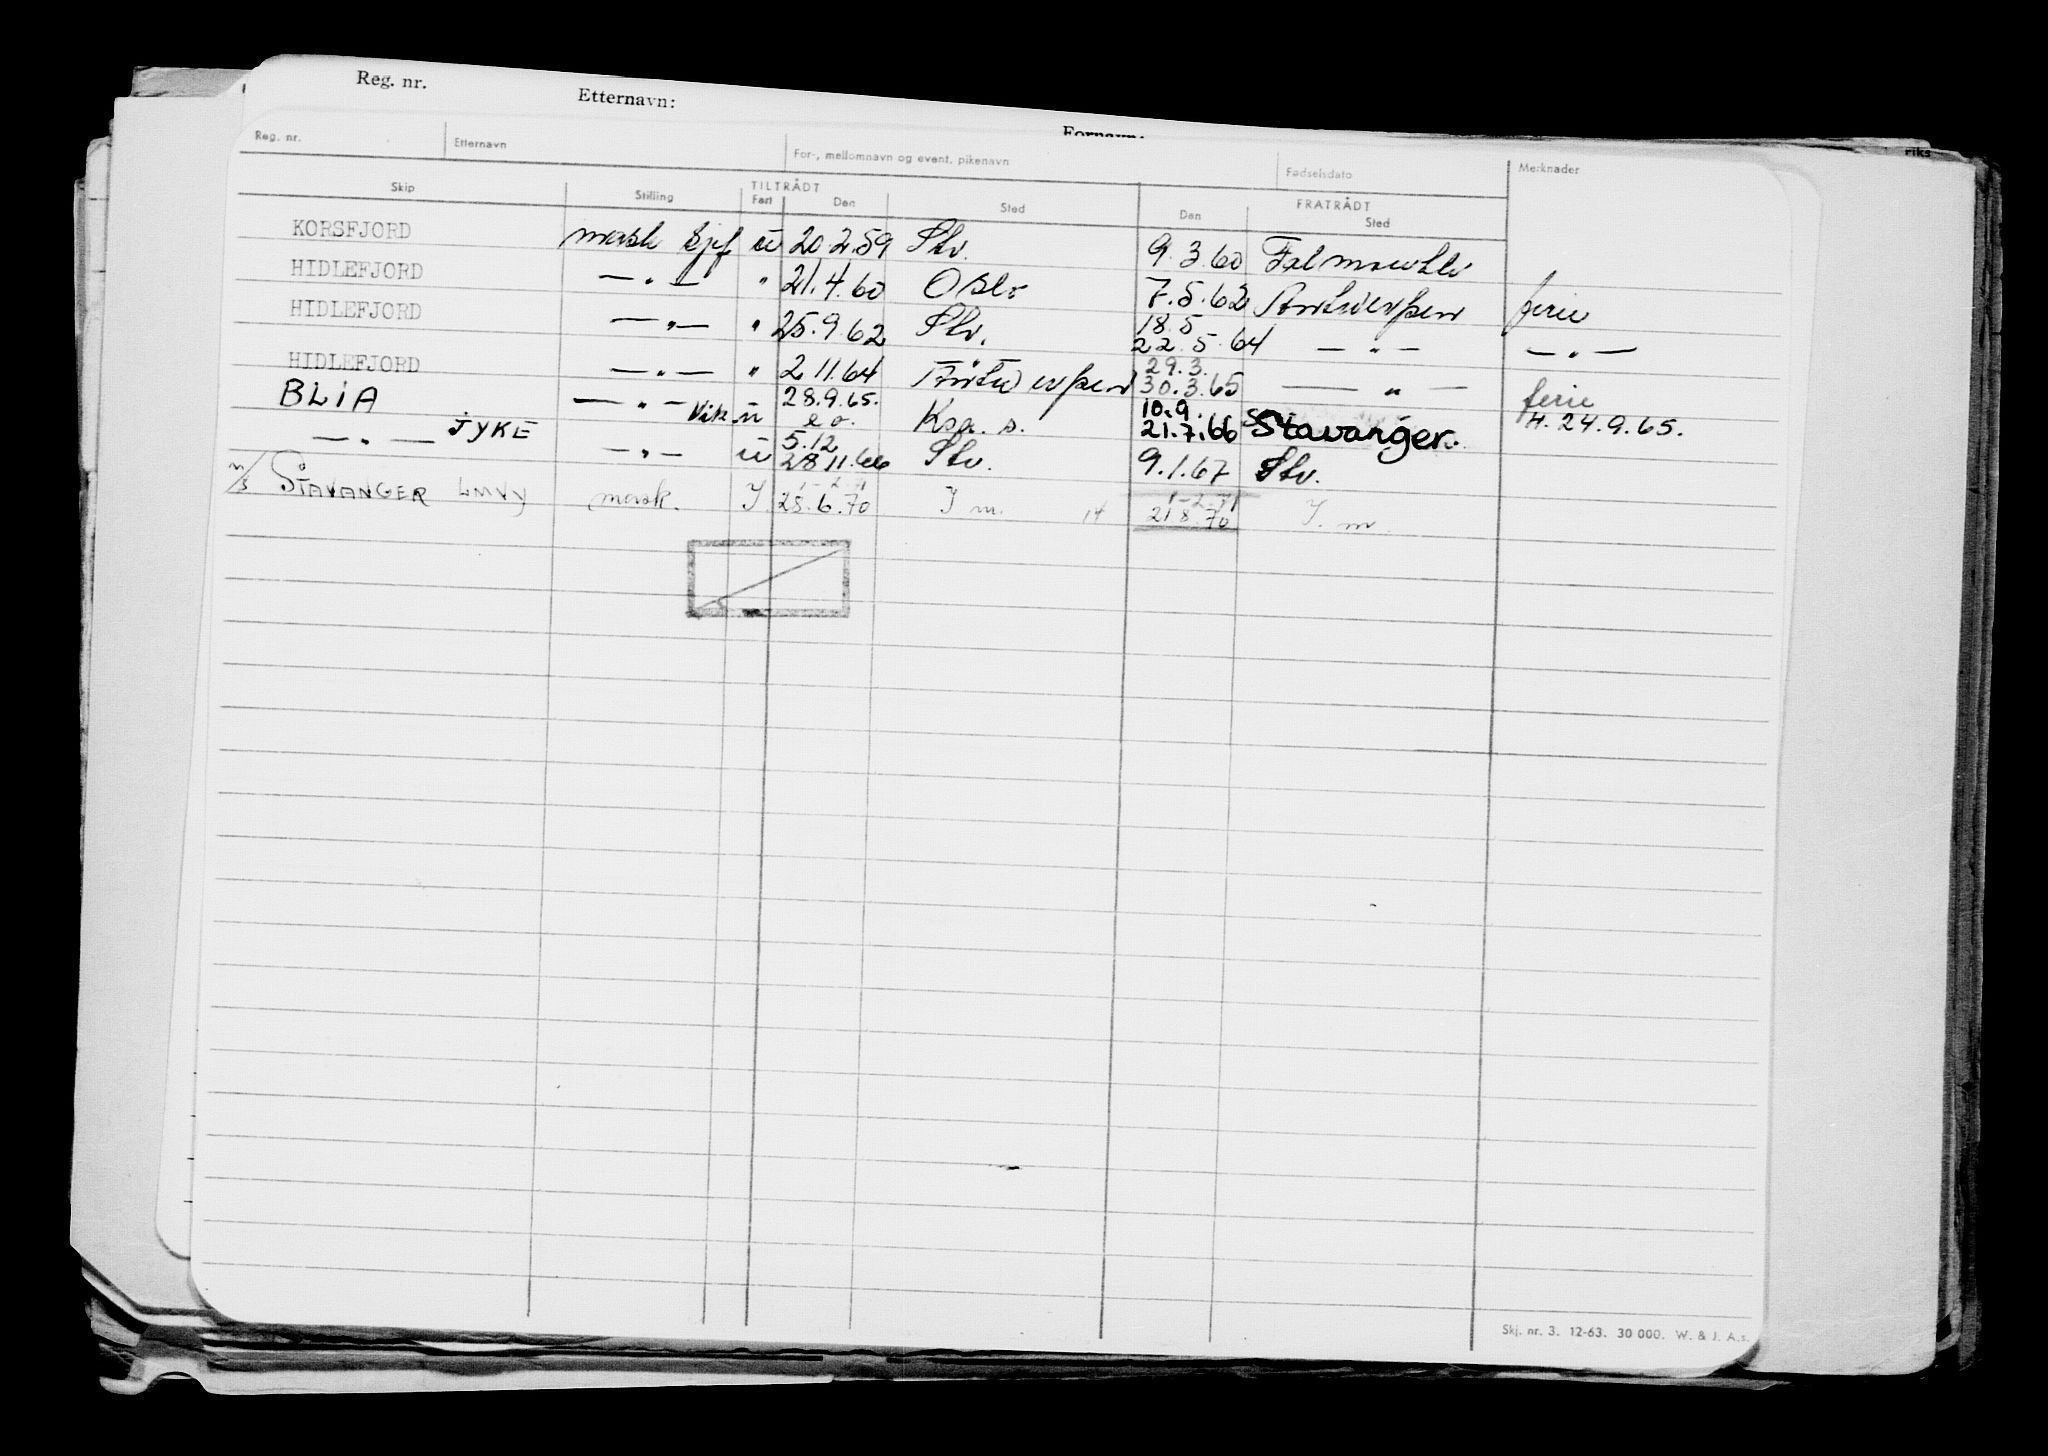 Reg. nr. Etternavn:
Reg. nr. Etternavn For-, mellomnavn og event. pikenavn Fødselsdato Merknader riks
Skip Stilling TILTRÅDT FRATRÅDT
Fart Den Sted Den Sted
KORSFJORD mask sjef u 20.2.59 Stv. 9.3.60 Falmouth
HIDLEFJORD — " — " 21.4.60 Oslo 7.5.62 Antwerpen ferie
18.5
HIDLEFJORD — " — " 25.9.62 Stv. 22.5.64 — " — — " —
29.3.
HIDLEFJORD — " — " 2 11.64 Antwerpen 30.3.65 — " — ferie
28.9.65. 10.9.
BLIA — " — Vik. u e o. Kra. s. 21.7.66 Stavanger. H. 24.9.65.
5.12
— " — JYKE — " — u 28 11.66 Stv. 9.1.67 Stv.
1-2-71
M/S STAVANGER LMVY mask. I 25.6.70 I m. 14 21 8.70 I. m.
Skj. nr. 3. 12-63. 30 000. W. & J. A.s.